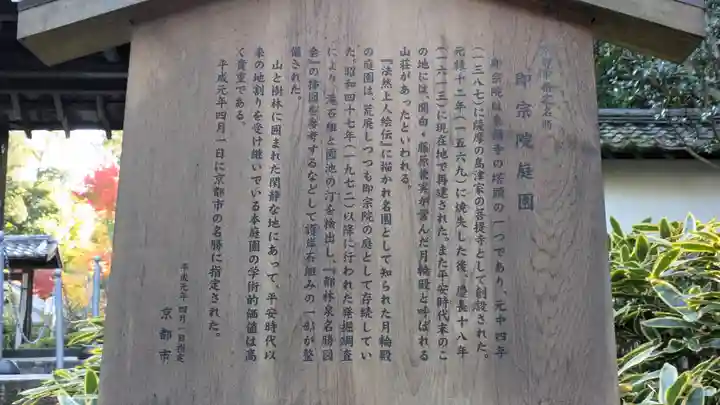 京都市指定名勝
即宗院庭園
即宗院は東福寺の塔頭の一つであり、元中四年
(一三八七)に薩摩の島津家の菩提寺として創設された。
元後十二年(一五六九)に焼失した後、慶長十八年
(一六一三)に現在地で再建された。また平安時代末のこ
の地には、関白・藤原兼実が営んだ月輪殿と呼ばれる
山荘があったといわれる。
『法然上人絵伝』に描かれ名園として知られた月輪殿
の庭園は、荒廃しつつも即宗院の庭として存続してい
た。昭和四十七年(一九七二)以降に行われた発掘調査
により、滝石組と園池の汀を検出し、『都林泉名勝図
会』の挿図を参考するなどして護岸石組みの一部が整
備された。
山と樹林に囲まれた閑静な地にあって、平安時代以
来の地割りを受け継いでいる本庭園の学術的価値は高
く貴重である。
平成元年四月一日に京都市の名勝に指定された。
平成元年四月一日指定
京都市